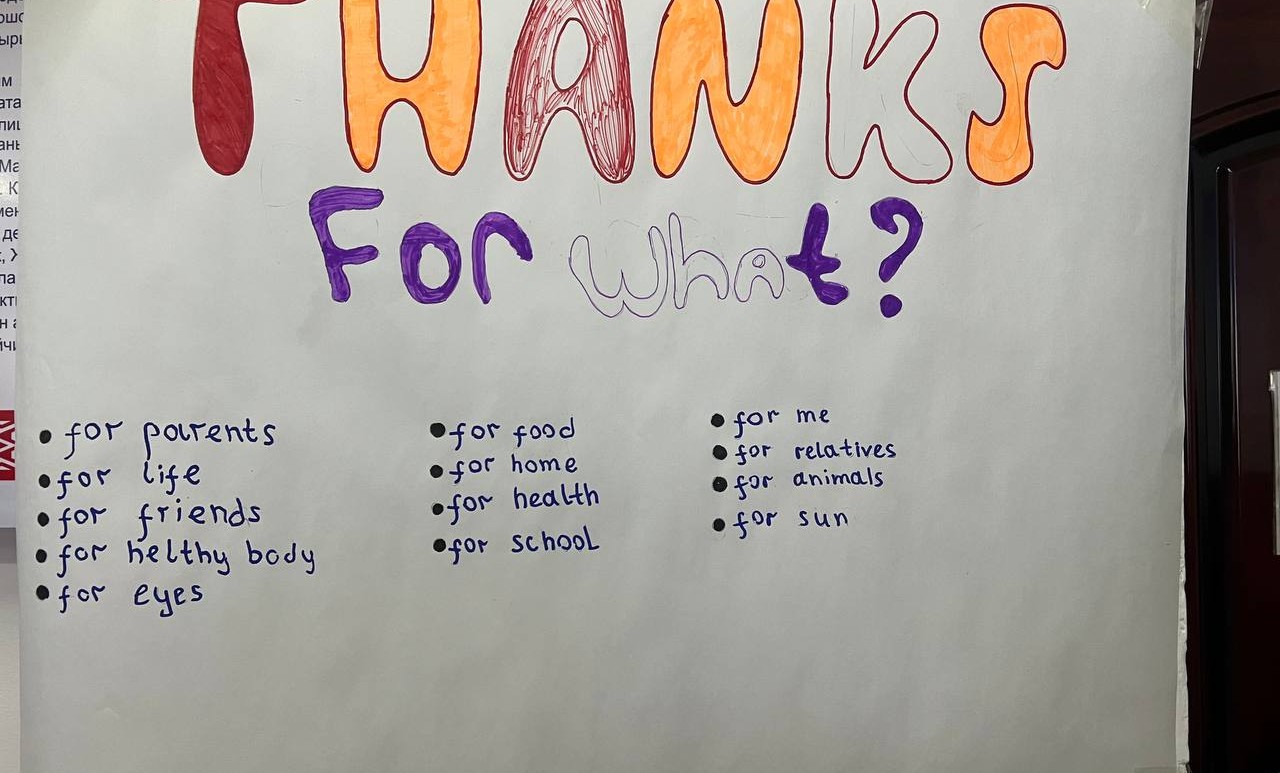 THANKS
For what?
• for parents
• for life
• for friends
• for helthy body
• for eyes
• for food
• for home
• for health
• for school
• for me
• for relatives
• for animals
• for sun